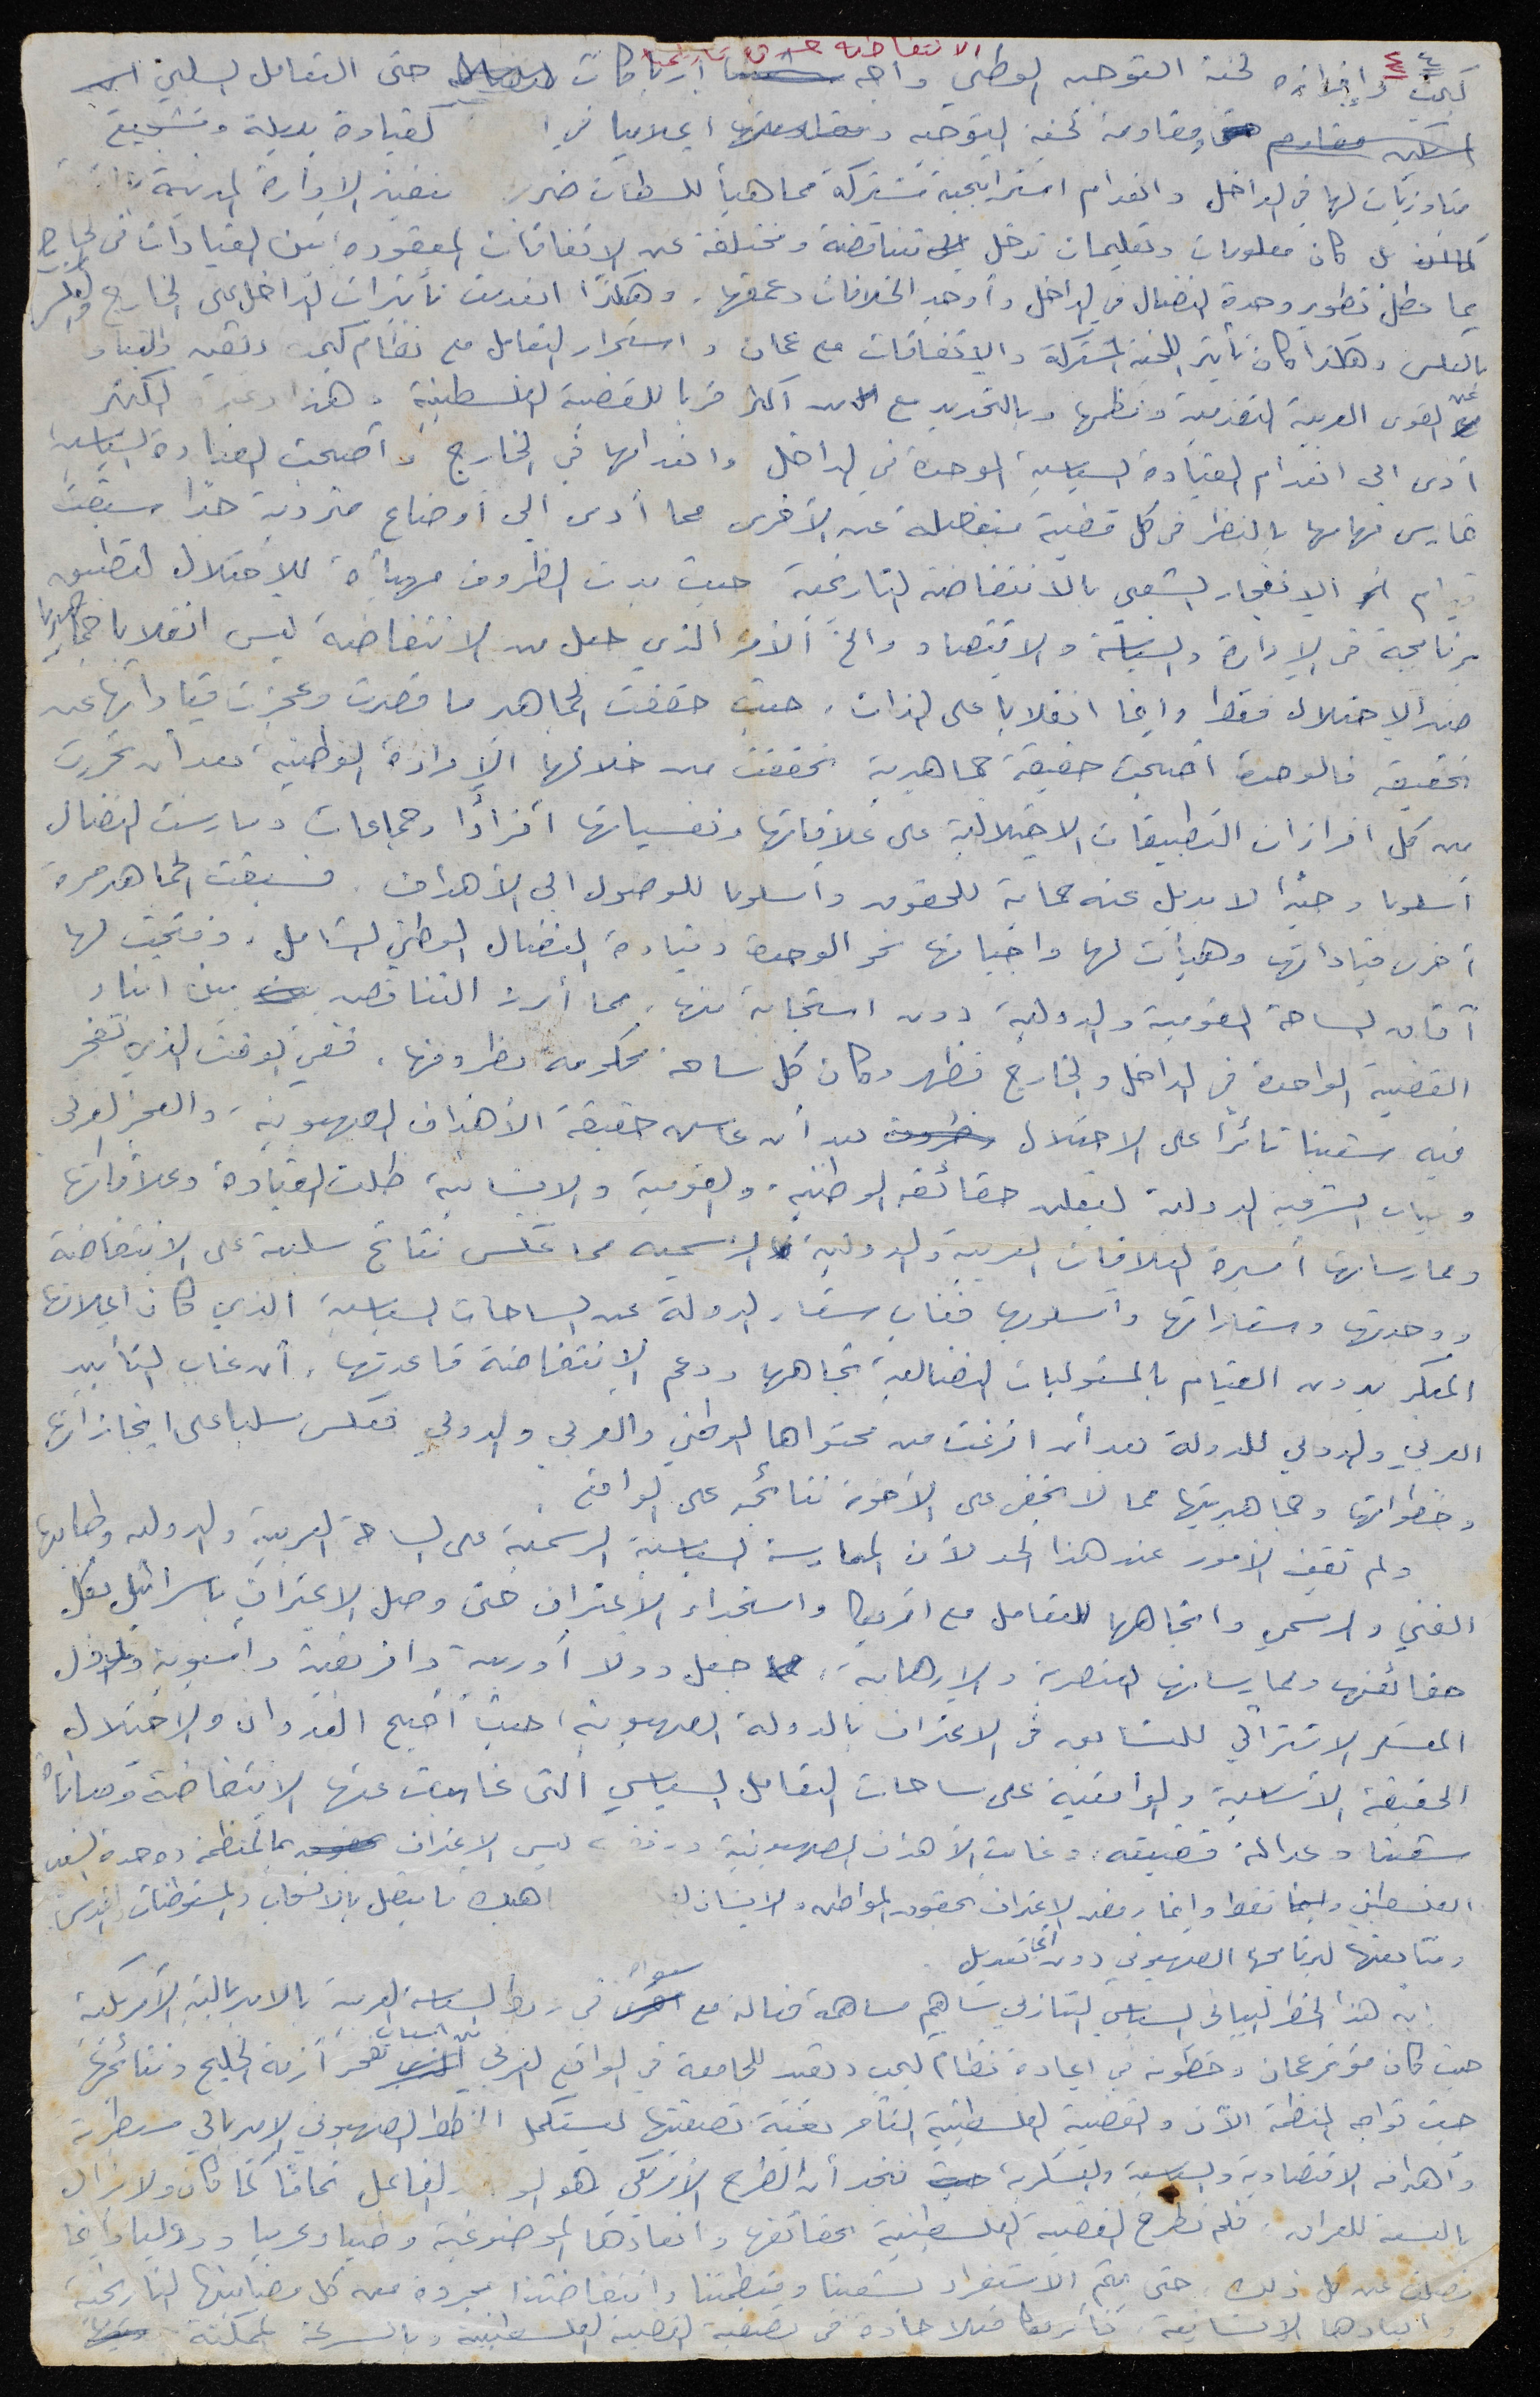 الانتفاضة حدث تاريخي
٤ ٤
كامب وإفرازه لجنة التوجيه الوطني واجه ارباكات حتى التعامل السلبي
ومقاومة لجنة التوجيه اعلاميا كقيادة بديلة وتشجيع
مناوزيات لها في الداخل وانعدام استراتيجية مشتركة مجابها للسلطات ضرر تنفيذ الإدارة المدنية
بل كان معلومات وتعليمات تدخل متناقضة ومختلفة عن الاتفاقات المعقودة بين القيادات في الخارج
مما عطل تطوير وحدة النضال في الداخل وأوجد الخلافات وعمقها. وهكذا انعدمت تأثيرات الداخل على الخارج والعكس
بالعكس وهكذا كان تأثير اللجنة المشتركة والاتفاقات مع عمان واستمرار التعامل مع نظام كامب
عن القوى العربية التقدمية ونظمها وبالتحديد مع من اكثر قربا للقضية الفلسطينية وهذا وغيره الكثير
أدى الى انعدام القيادة السياسية الموحدة في الداخل وانعدامها في الخارج وأصبحت القيادة السياسية
تمارس مهامها بالنظر في كل قضية منفصلة عن الأخرى مما أدى الى أوضاع متردية جدا سبقت
قيام الانفجار الشعبي بالانتفاضة التاريخية حيث بدت الظروف مهيأة للاحتلال لتطبيق
برنامجه في الإدارة والسياسة والاقتصاد والخ الأمر الذي جعل من الانتفاضة ليس انقلابا جماهيريا
ضد الاحتلال فقط وانما انقلابا على الذات. حيث حققت الجماهير ما قصرت وعجزت قياداتها عن
تحقيقه فالوحدة أصبحت حقيقة جماهيرية تحققت من خلالها الإرادة الوطنية بعد أن تحررت
من كل افرازات التطبيقات الاحتلالية على علاقاتها ونفسياتها أفرادا وجماعات ومارست النضال
أسلوبا وحيدا لا بديل عنه حماية للحقوق وأسلوبا للوصول الى الأهداف. فسبقت الجماهير مرة
أخرى قياداتها وهيأت لها واجباتها نحو الوحدة وقيادة النضال الوطني الشامل. وفتحت لها
آفاق الساحة القومية والدولية دون استجابة منها. مما أبرز التناقض بين ابناء
القضية الواحدة في الداخل والخارج فظهر وكان كل ساحة محكومة بظروفها. ففي الوقت الذي تفجر
فيه شعبنا ثائرا على الاحتلال بعد أن عايش حقيقة الأهداف الصهيونية، والعجز العربي
وغياب الشرعية الدولية ليعلن حقائقه الوطنية والقومية والإنسانية ظلت القيادة وعلاقاتها
وممارساتها أسيرة العلاقات العربية والدولية الرسمية مما عكس نتائج سلبية على الانتفاضة
ووحدتها وشعاراتها وأسلوبها فغاب شعار الدولة عن الساحات السياسية الذي كان اعلانها
المبكر بدون القيام بالمسئوليات النضالية تجاهها ودعم الانتفاضة قاعدتها. أن غاب التأييد
العربي والدولي للدولة بعد أن افرغت من محتواها الوطني والعربي والدولي فعكس سلبا على انجازاتها
وخطواتها وجماهيريتها مما لا يخفى على الأخوة نتائجه على الواقع.
ولم تقف الأمور عند هذا الحد لأن الممارسة السياسية الرسمية على الساحة العربية والدولية وطابعها
الفني والرسمي واتجاهها للتعامل مع امريكا واستجداء الاعتراف حتى وصل الاعتراف باسرائيل بكل
حقائقها وممارساتها العنصرية والإرهابية، جعل دولا أوربية وافريقية وأسيوية ودول
المعسكر الاشتراكي للتسابق في الاعتراف بالدولة الصهيونية، حيث أصبح العدوان والاحتلال
الحقيقة الأساسية والواقعية على ساحات التعامل السياسي التي غابت عنها الانتفاضة ومعاناة
شعبنا وعدالة قضيته. وغابت الأهداف الصهيونية ورفضه ليس الاعتراف بالمنظمة ووحدة الشعب
الفلسطيني فقط وانما رفضه الاعتراف بحقوق المواطن والانسان اهيك ما يتصل بالانسحاب والمستوطنات والقدس
ومتابعتها لبرنامجها الصهيوني دون أي تعديل
ان هذا الخط البياني السياسي التنازلي ساهم مساهمة فعالة مع سواه في ربط السياسة العربية بالامبريالية الأمريكية
حيث كان مؤتمر عمان وخطوته في اعادة نظام كامب ديفيد للجامعة في الواقع العربي من اسباب تفجر أزمة الخليج ونتائجها
حيث تواجه المنطقة الآن والقضية الفلسطينية التآمر بغية تصفيتها ليستكمل المخطط الصهيوني الامبريالي سيطرته
وأهدافه الاقتصادية والسياسية والعسكرية فنجد أن الطرح الأمريكي هو الفاعل تماما كما كان ولا يزال
بالنسبة للعراق. فلم تطرح القضية الفلسطينية بحقائقها وابعادها الموضوعية وطنيا وعربيا ودوليا وانما
فصلت عن كل ذلك. حتى يتم الاستفراد بشعبنا ومنظمتنا وانتفاضتنا مجردة من كل مضامينها التاريخية
وابعادها الإنسانية. فأمريكا فعلا جادة في تصفية القضية الفلسطينية وبالسرعة الممكنة